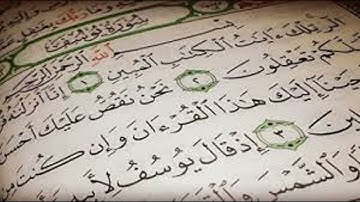 سُورَةُ يُوسُفَ
بِسْمِ اللَّهِ الرَّحْمَٰنِ
الٓر تِلْكَ ءَايَٰتُ ٱلْكِتَٰبِ ٱلْمُبِينِ ١ إِنَّآ أَنزَلْنَٰهُ
لَّكُمْ تَعْقِلُونَ ٢ نَحْنُ نَقُصُّ عَلَيْكَ أَحْسَنَ
إِلَيْكَ هَٰذَا ٱلْقُرْءَانَ وَإِن كُنتَ مِن
٣ إِذْ قَالَ يُوسُفُ لِأَبِيهِ
وَٱلشَّمْسَ وَٱلْقَمَرَ